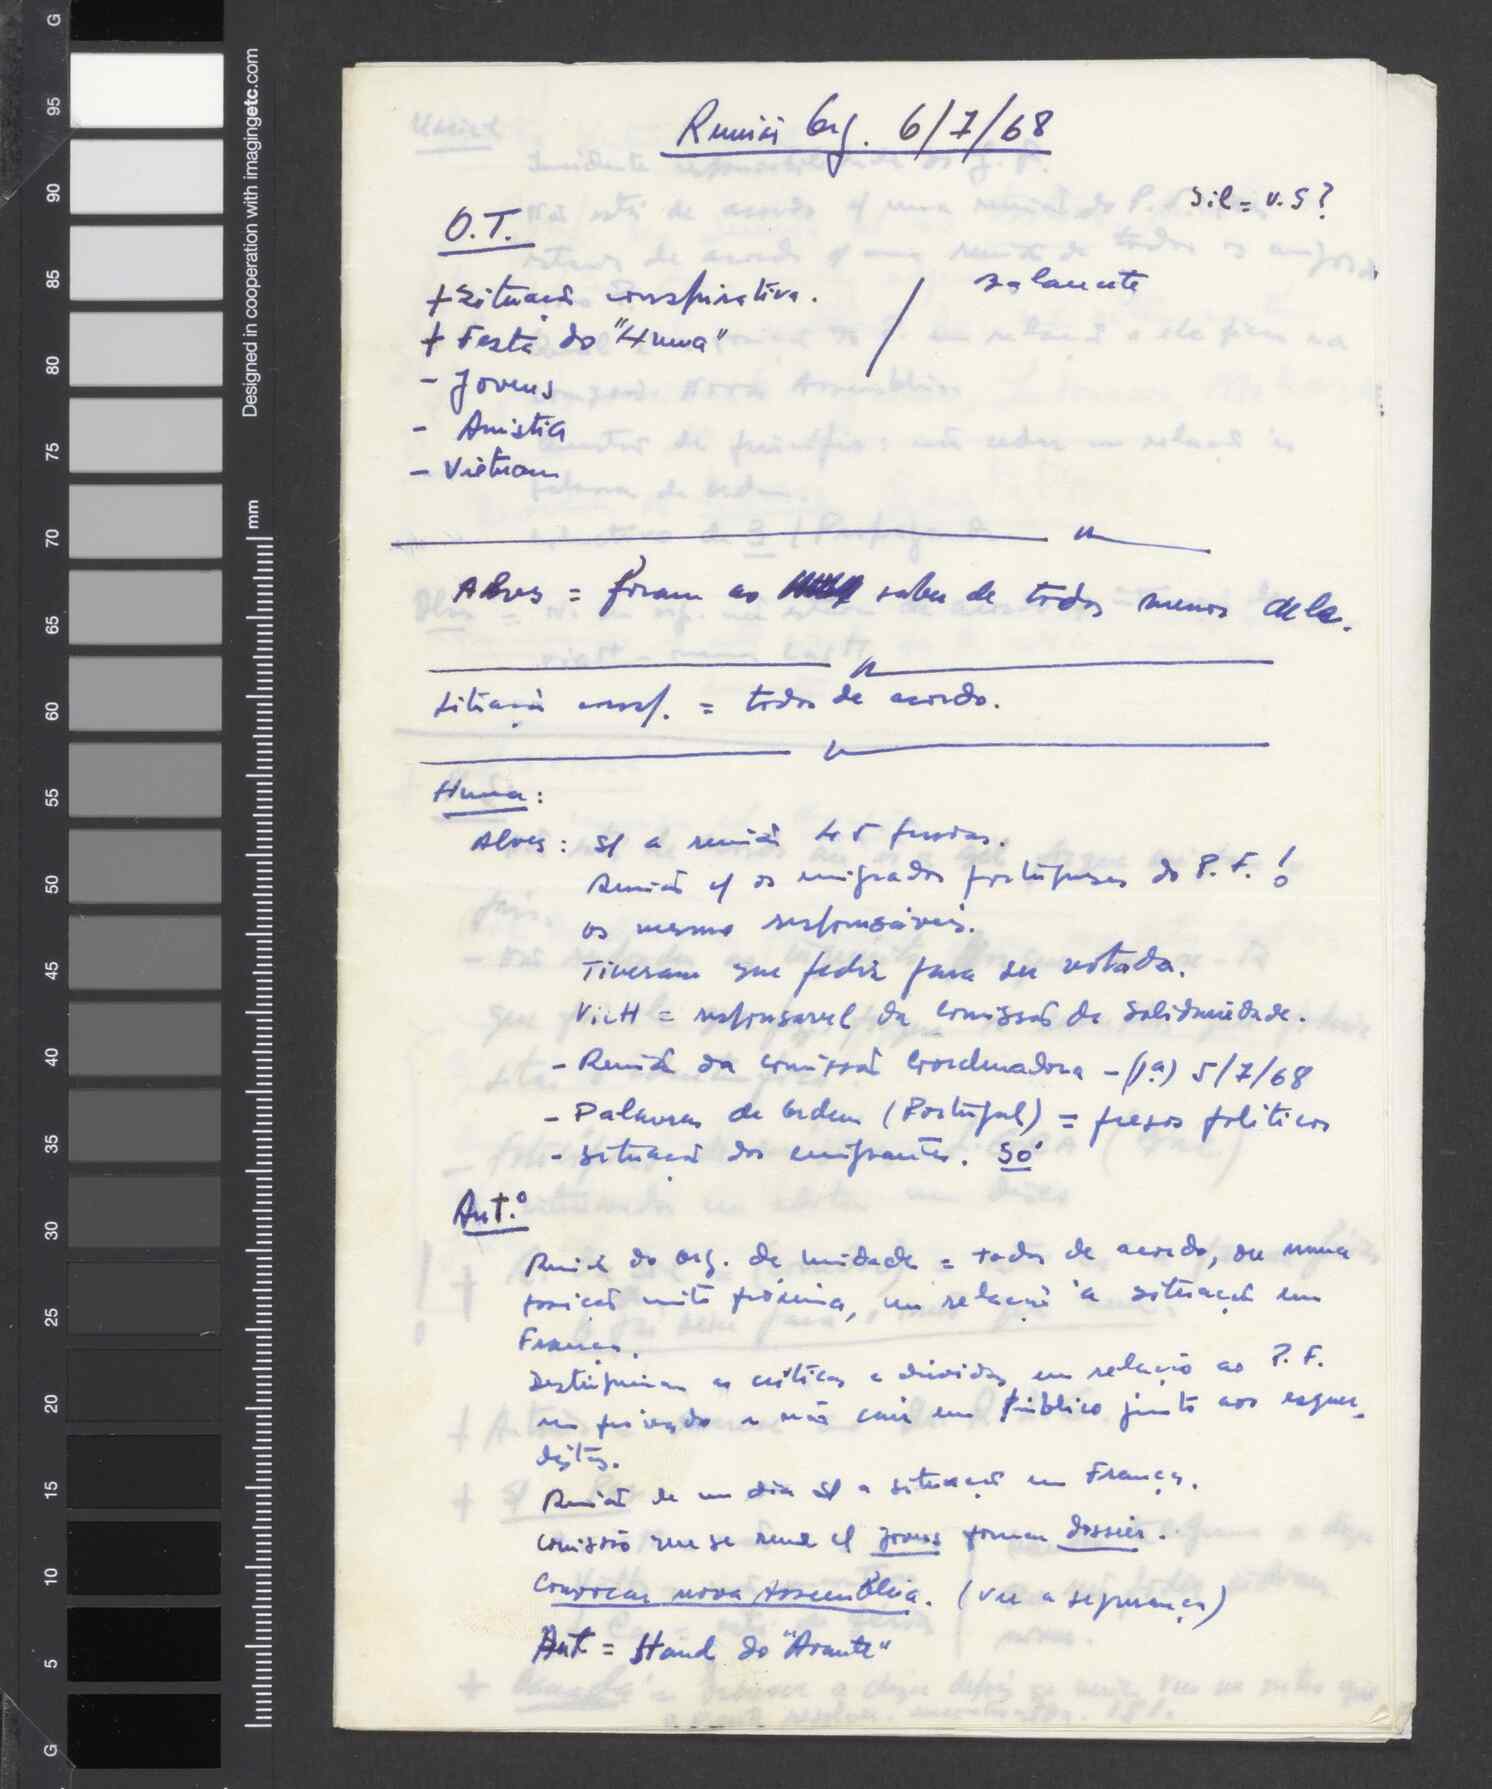 Reunião Org. 6/7/68
Sil = v. S?
O.T.
+ Situação conspirativa. /
+ Festa do "Huma"
- Jovens
- Amistia
- Vietnam
Alves = foram ao saber de todos menos dela.
Situação consp. = todos de acordo.
Huma:
Alves: s/ a reunião 45 pessoas.
Reunião c/ os emigrados portugueses do P.F.!
os mesmo responsáveis.
Tiveram que pedir para ser votada.
VicH = responsavel da Comissão de Solidariedade.
- Reunião da comissão Coordenadora - (1ª) 5/7/68
- Palavras de Ordem (Portugal) = presos politicos
- situação dos emigrantes. Só
Ant.º
Reunião do org. de Unidade = todos de acordo, ou numa
posição muito próxima, em relação à situação em
França.
Destinguiram as criticas e dúvidas em relação ao P.F.
em privado e não cair em público junto aos esquer-
distas.
Reunião de um dia s/ a situação em França.
Comissão que se reune c/ jovens formar dossier.
Convocar nova Assembleia. (ver a segurança)
Ant = Stand do "Avante"
G
95
90
85
80
75
70
65
60
55
50
45
40
35
30
25
20
15
10
5
G
Designed in cooperation with imagingetc.com
mm